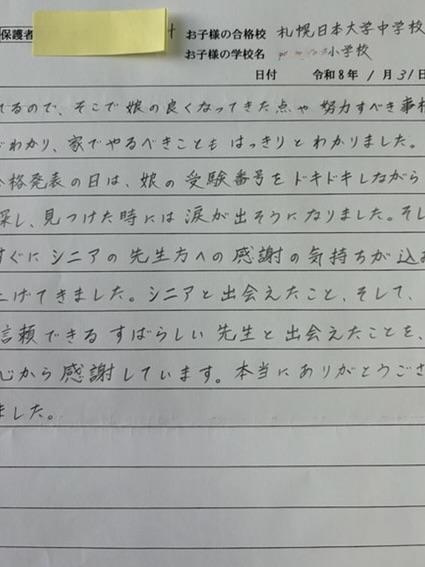 保護者 お子様の合格校 札幌日本大学中学校
お子様の学校名 小学校
日付 令和8年 1月 31日
てるので、そこで娘の良くなってきた点や努力すべき事柄
がわかり、家でやるべきこともはっきりとわかりました。
合格発表の日は、娘の受験番号をドキドキしながら
探し、見つけた時には涙が出そうになりました。そし
すぐにシニアの先生方への感謝の気持ちが込み
上げてきました。シニアと出会えたこと、そして、
信頼できるすばらしい先生と出会えたことを、
心から感謝しています。本当にありがとうござ
ました。